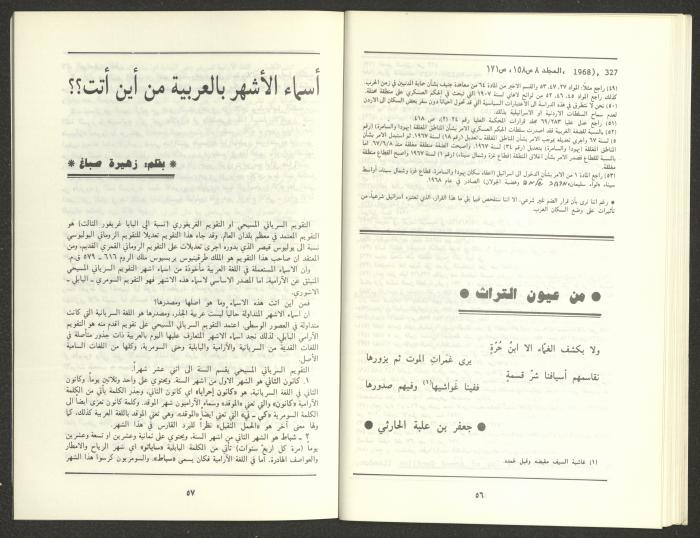 327 ,(1968 ,المجلد ٨ ص١٥٨، ص١٧١
(٤٩) راجع مثلاً: المواد ٢٧، ٤٧، ٥٣ والقسم الاخير من المادة ٦٤ من معاهدة جنيف بشأن حماية المدنيين في زمن الحرب.
كذلك راجع المواد ٤٥، ٤٦، ٥٢ من لوائح لاهاي لسنة ١٩٠٧ التي تبحث في الحكم العسكري على منطقة محتلة.
(٥٠) نحن لا نتطرق في هذه الدراسة الى الأعتبارات السياسية التي قد تحول احياناً دون سفر بعض السكان الى الاردن
لعدم سماح السلطات الاردنية او الاسرائيلية بذلك.
(٥١) راجع عدل عليا ٦٩/٢٨٣ مجلد قرارات المحكمة العليا رقم ٢٤ (٢)، ص ٤١٨.
(٥٢) بالنسبة للضفة الغربية فقد اصدرت سلطات الحكم العسكري الامر بشأن المناطق المغلقة (يهودا والسامرة) (رقم
٥) لسنة ٦٧ واجرى تعديله بموجب الامر بشأن المناطق المغلقة ـ تعديل (رقم ١٨) لسنة ١٩٦٧، ثم استبدل الامر بشأن
المناطق المغلقة (يهودا والسامرة)، بتعديل (رقم ٣٤) لسنة ١٩٦٧، واصبحت الضفة منطقة مغلقة منذ ٦٧/٩/٨ اما
بالنسبة للقطاع فصدر الامر بشأن اغلاق المنطقة (قطاع غزة وشمال سيناء) (رقم ١) لسنة ١٩٦٧ واصبح القطاع منطقة
مغلقة.
(٥٣) راجع المادة ١ من الامر بشأن الدخول الى اسرائيل (اعفاء سكان يهودا والسامرة، قطاع غزة وشمال سيناء، اواسط
سيناء وهضبة الجولان) الصادر في عام ١٩٦٨.
* رغم اننا نرى بأن قرار الضم غير شرعي، الا اننا سنفحص فيما يلي ما هذا القرار، الذي تعتبره اسرائيل شرعياً، من
تأثيرات على وضع السكان العرب.
● من عيون التراث ●
ولا يكشف الغماء الا ابنُ حُرّةٍ
يرى غمراتِ الموت ثم يزورها
نقاسمهم أسيافنا شرّ قسمةٍ
ففينا غَواشيها(١) وفيهم صدورها
● جعفر بن علبة الحارثي ●
(١) غاشية السيف مقبضه وقيل غمده
٥٦
أسماء الأشهر بالعربية من أين أتت؟؟
* بقلم: زهيرة صباغ *
التقويم السرياني المسيحي او التقويم الغريغوري (نسبة الى البابا غريغور الثالث) هو
التقويم المعتمد في معظم بلدان العالم. وقد جاء هذا التقويم تعديلاً للتقويم الروماني اليوليوسي
نسبة الى يوليوس قيصر الذي بدوره اجرى تعديلات على التقويم الروماني القمري القديم، ومن
المعتقد ان صاحب هذا التقويم هو الملك طرقينيوس بريسيوس ملك الروم ٦١٦ ـ ٥٧٩ ق.م.
وان الأسماء المستعملة في اللغة العربية مأخوذة من اسماء اشهر التقويم السرياني المسيحي
المنبثق عن الآرامية، اما المصدر الاساسي لأسماء هذه الاشهر فهو التقويم السومري ـ البابلي ـ
الاشوري.
فمن أين اتت هذه الاسماء وما هو اصلها ومصدرها؟
ان أسماء الاشهر المتداولة حالياً ليست عربية الجذر، ومصدرها هو اللغة السريانية التي كانت
متداولة في العصور الوسطى. اعتمد التقويم السرياني المسيحي على تقويم اقدم منه هو التقويم
الآرامي البابلي، لذلك نجد اسماء الاشهر المتعارف عليها اليوم بالعربية ذات جذور متأصلة في
اللغات القديمة من السريانية والآرامية والبابلية وحتى السومرية، وكلها من اللغات السامية
الأصل.
التقويم السرياني المسيحي يقسم السنة الى اثني عشر شهراً.
١. كانون الثاني هو الشهر الاول من اشهر السنة، ويحتوي على واحد وثلاثين يوماً، وكانون
الثاني في اللغة السريانية، هو «كانون إحرايا» اي كانون الثاني، وجذر الكلمة يأتي من الكلمة
الآرامية «كانون» والتي تعني «الموقد» وسماء الآراميون شهر الموقد. وكلمة كانون تعزى ايضاً الى
الكلمة السومرية «كي ـ ني» التي تعني ايضاً «الموقد»، وهي تعني الموقد باللغة العربية كذلك، كما
ولها معنى آخر هو «الحمل الثقيل» نظراً للبرد القارس في هذا الشهر.
٢ ـ شباط هو الشهر الثاني من اشهر السنة، ويحتوي على ثمانية وعشرين او تسعة وعشرين
يوماً (مرة كل اربع سنوات) تأتي من الكلمة البابلية «ساباتو» اي شهر الرياح والامطار
والعواصف الهادرة. أما في اللغة الآرامية فكان يسمى «سباط». والسومريون كرسوا هذا الشهر
٥٧